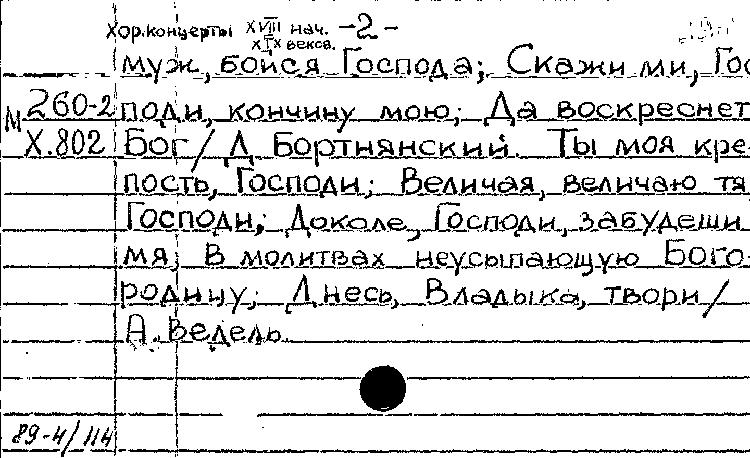 Хор.концерты XVIII нач. -2-
XIX века.
муж, бойся Господа; Скажи ми, Гос
М 260-2 поди, кончину мою; Да воскреснет
Х.802 Бог/Д. Бортнянский. Ты моя кре-
пость, Господи; Величая, величаю тя
Господи; Доколе, Господи, забудеши
мя; В молитвах неусыпающую Бого-
родицу; Днесь, Владыка, твори/
А. Ведель.
89-4/114